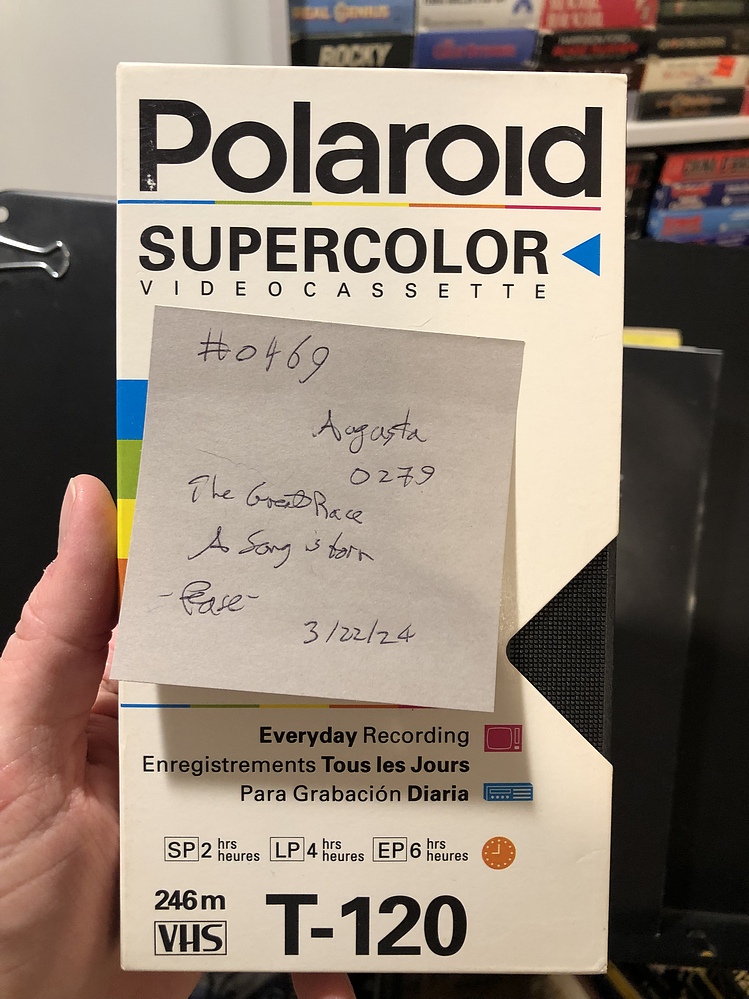 ROCKY
Polaroid
SUPERCOLOR
VIDEOCASSETTE
#0469
Augusta
0279
The Great Race
A Song is born
3/22/24
Everyday Recording
Enregistrements Tous les Jours
Para Grabación Diaria
SP 2 hrs heures LP 4 hrs heures EP 6 hrs heures
246m
VHS T-120